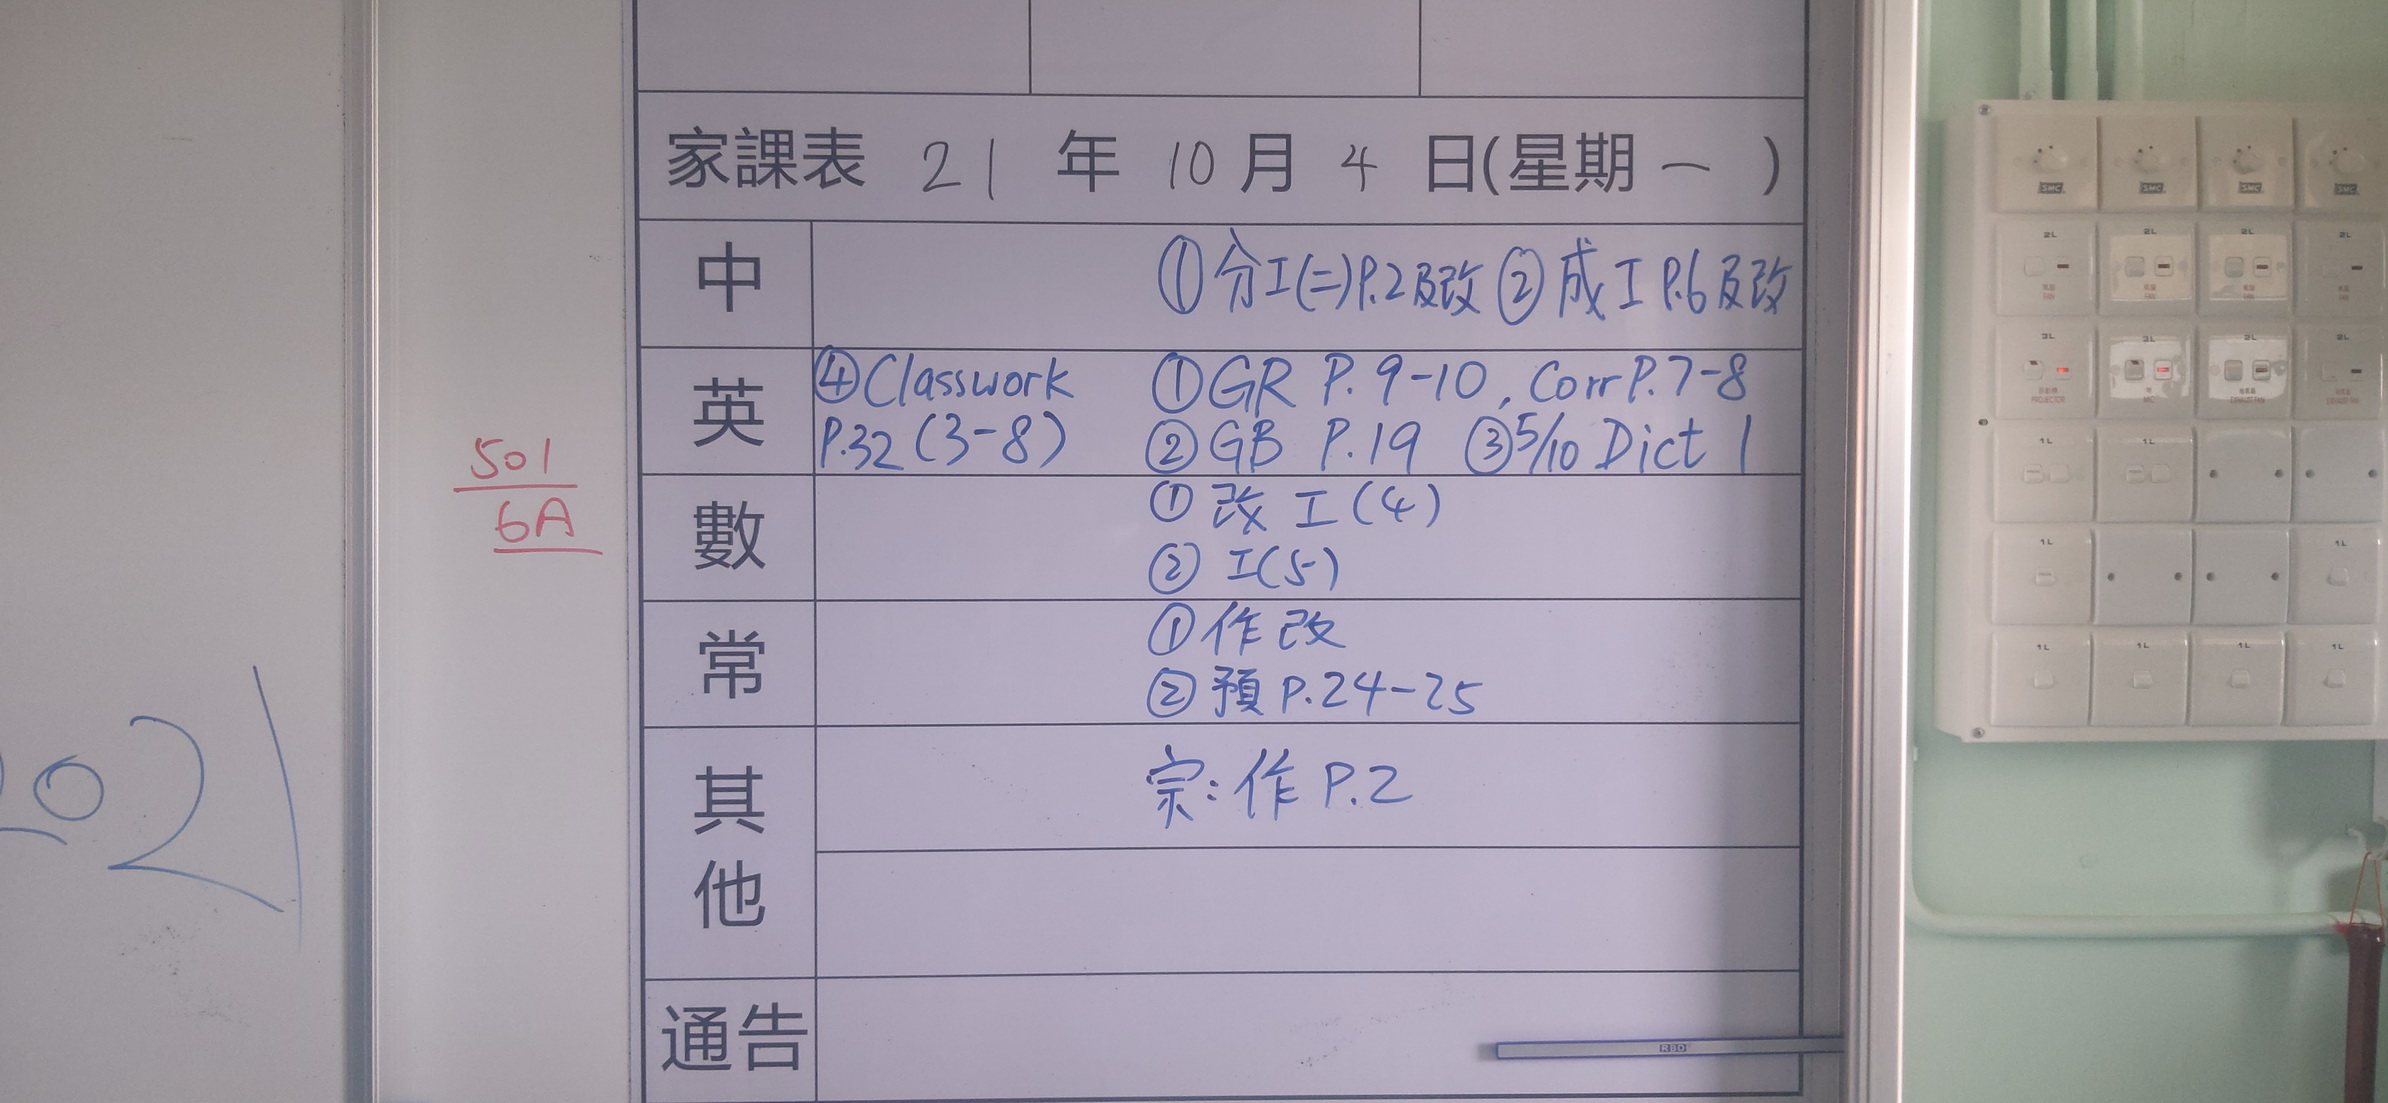 家課表 21 年 10 月 4 日(星期 一 )
中 ①分工(二)P.2及改 ②成工P.6及改
英 ④Classwork ①GR P. 9-10, Corr P.7-8
P.32 (3-8) ②GB P.19 ③5/10 Dict 1
數 ① 改工(4)
② 工(5)
常 ①作改
②預P.24-25
其他 宗:作 P.2
通告
501
6A
021
RBD
SMC SMC SMC SMC
2L 2L 2L 2L
FAN FAN FAN FAN
3L 3L 2L 2L
PROJECTOR MIC EXHAUST FAN EXHAUST FAN
1L 1L
1L 1L
1L 1L 1L 1L